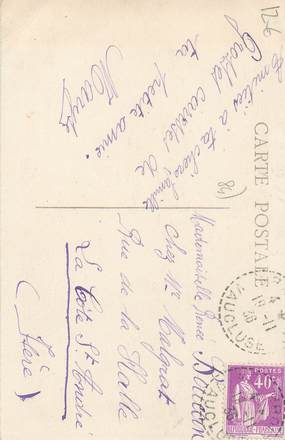 12€
Amitiés à ta chère famille
Grosses caresses de
ta petite amie.
84)
CARTE POSTALE
Mademoiselle Renée
Chez Mr Malgrat
Rue de la Halle
La Côte St André
(Isère)
VAUCLUSE
POSTES
40c